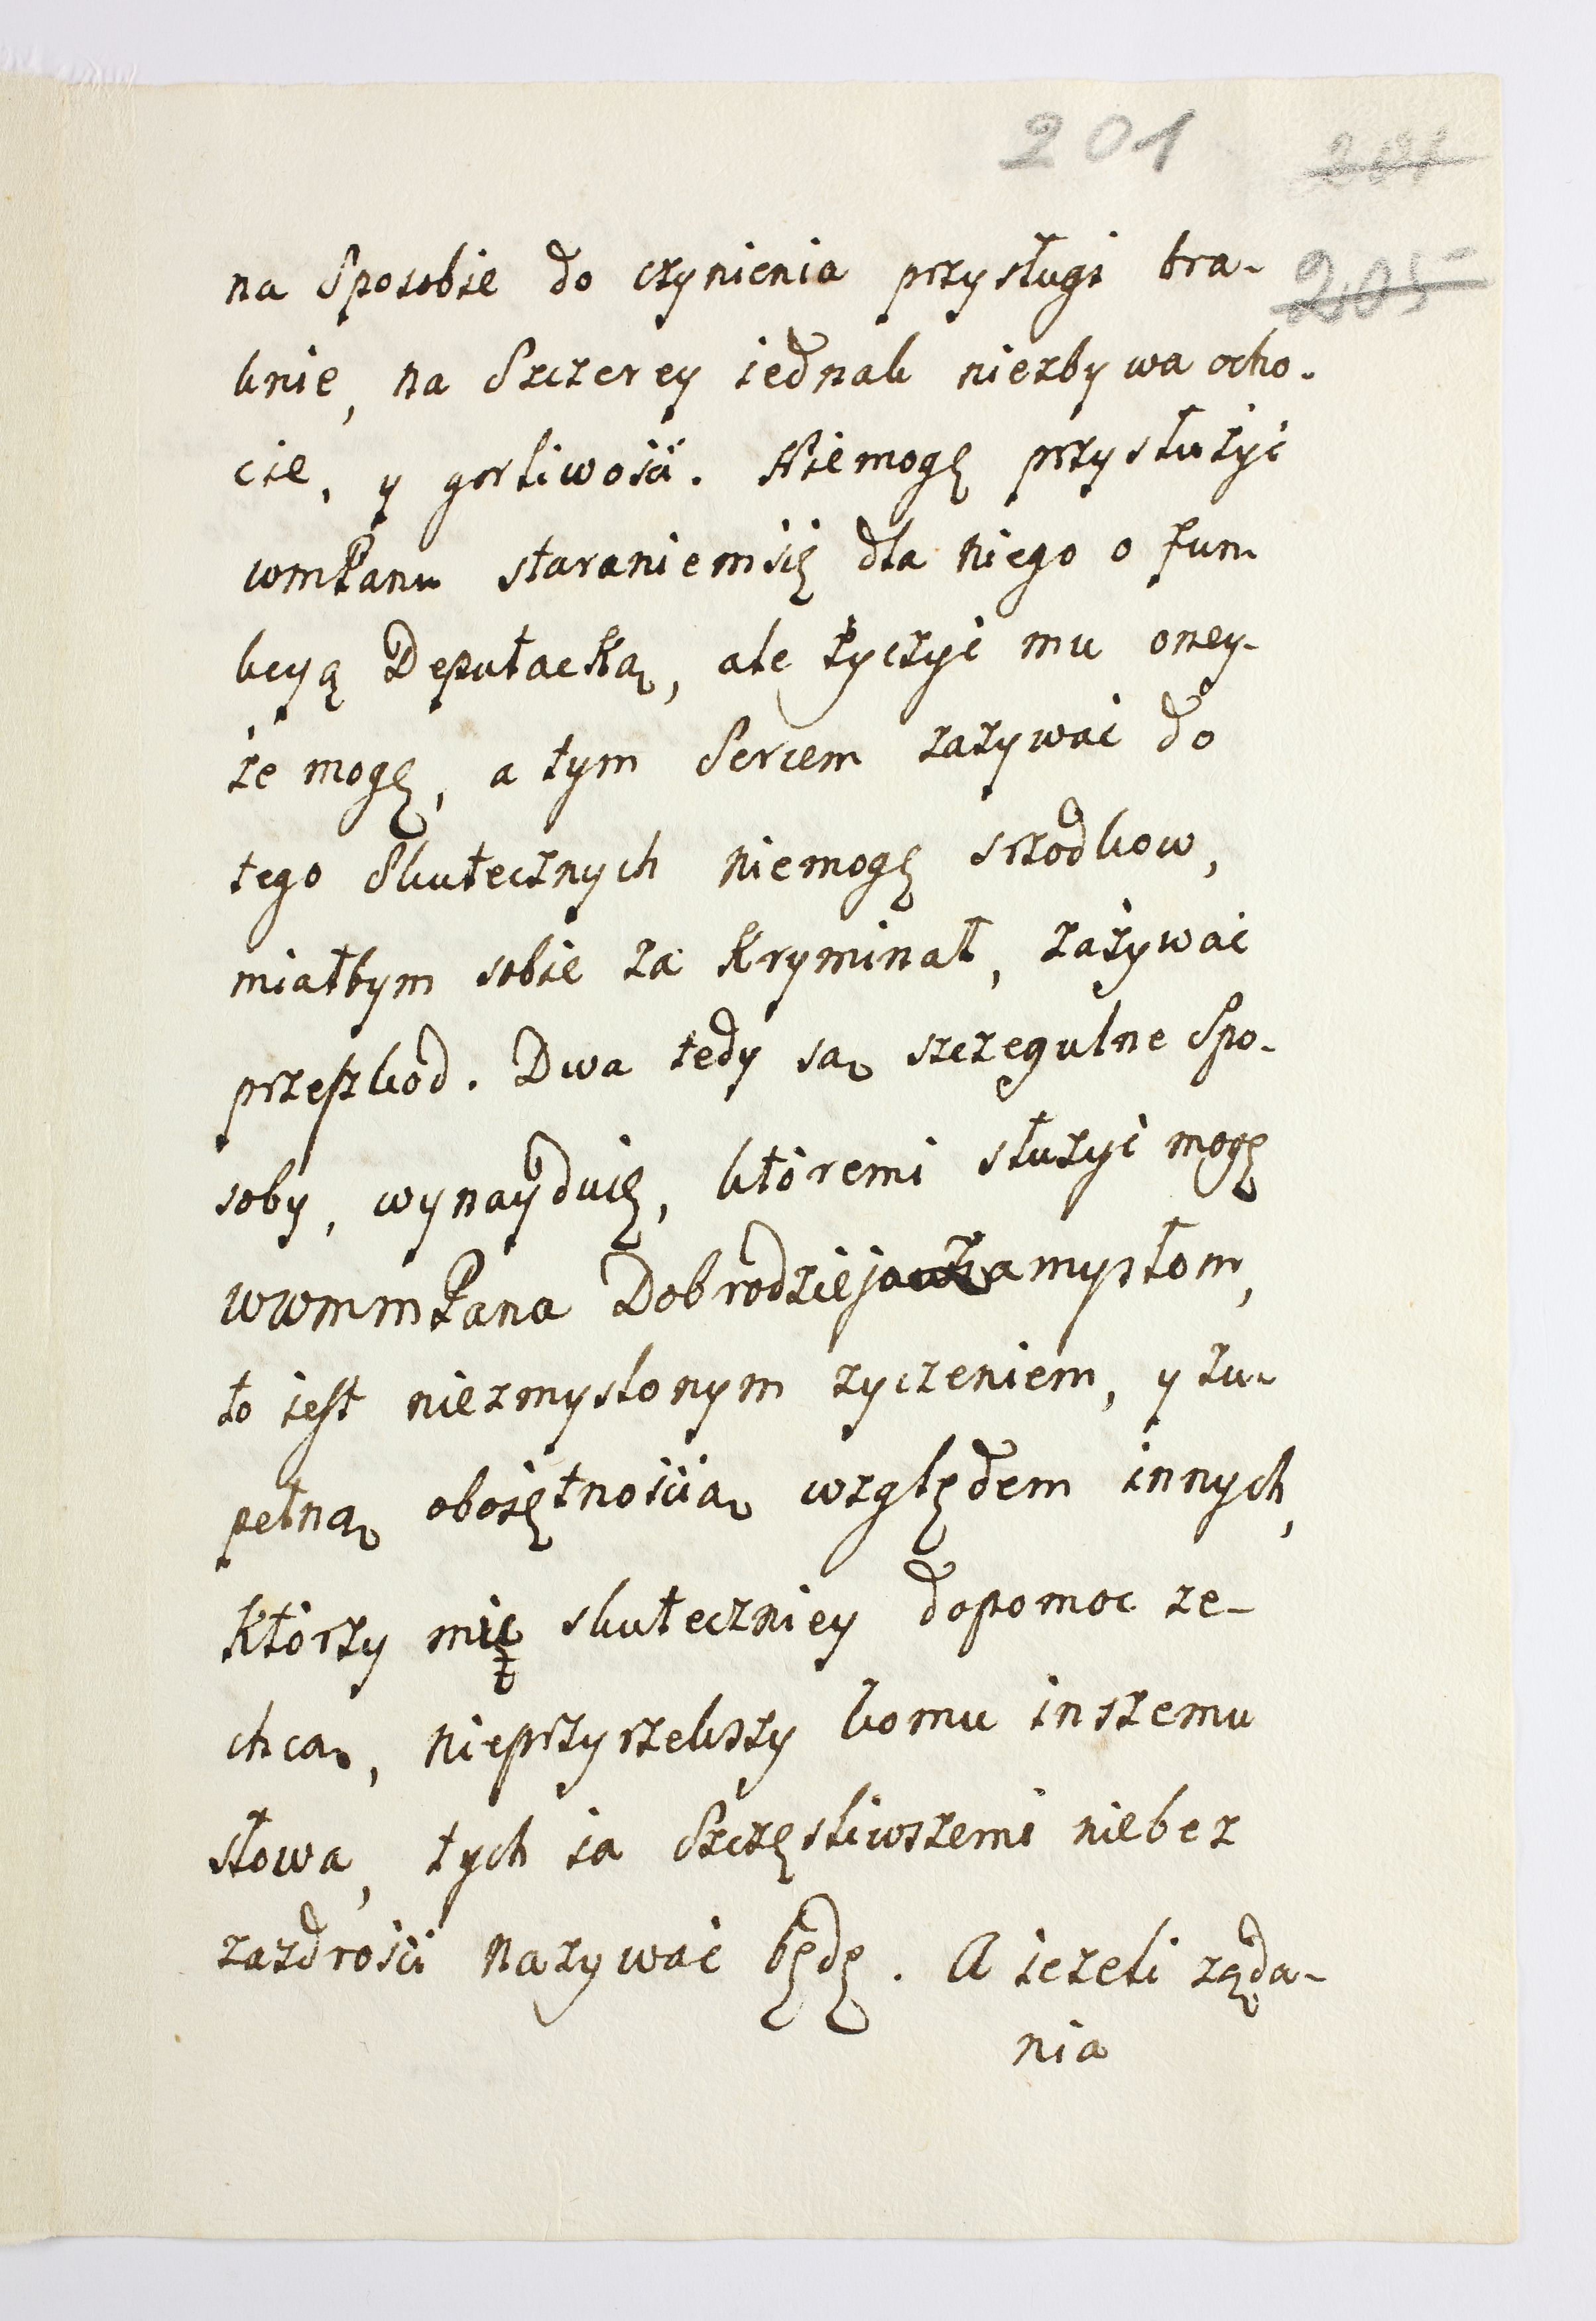 201 201
205
na Sposobie do czynienia przysługi bra-
knie, na Szczerey iednak niezbywa ocho-
cie, y gorliwości. Niemogę przysłużyć
wmPanu staraniemsię dla niego o fun-
kcyą Deputacką, ale życzyć mu oney-
że mogę, a tym Sercem zażywać do
tego Skutecznych niemogę srzodkow,
miałbym sobie za Kryminał, zażywać
przeszkod. Dwa tedy są szczegulne Spo-
soby, wynayduię, któremi służyć mogę
wwmmPana Dobrodzieja zamysłom,
to iest niezmyslonym zyczeniem, y zu-
pełną oboiętnością względem innych,
Którzy mię skuteczniey dopomoc ze-
chcą, nieprzyrzekszy komu inszemu
słowa, tych ia Szczęsliwszemi niebez
zazdrości nazywać będę. A iezeli ząda-
nia